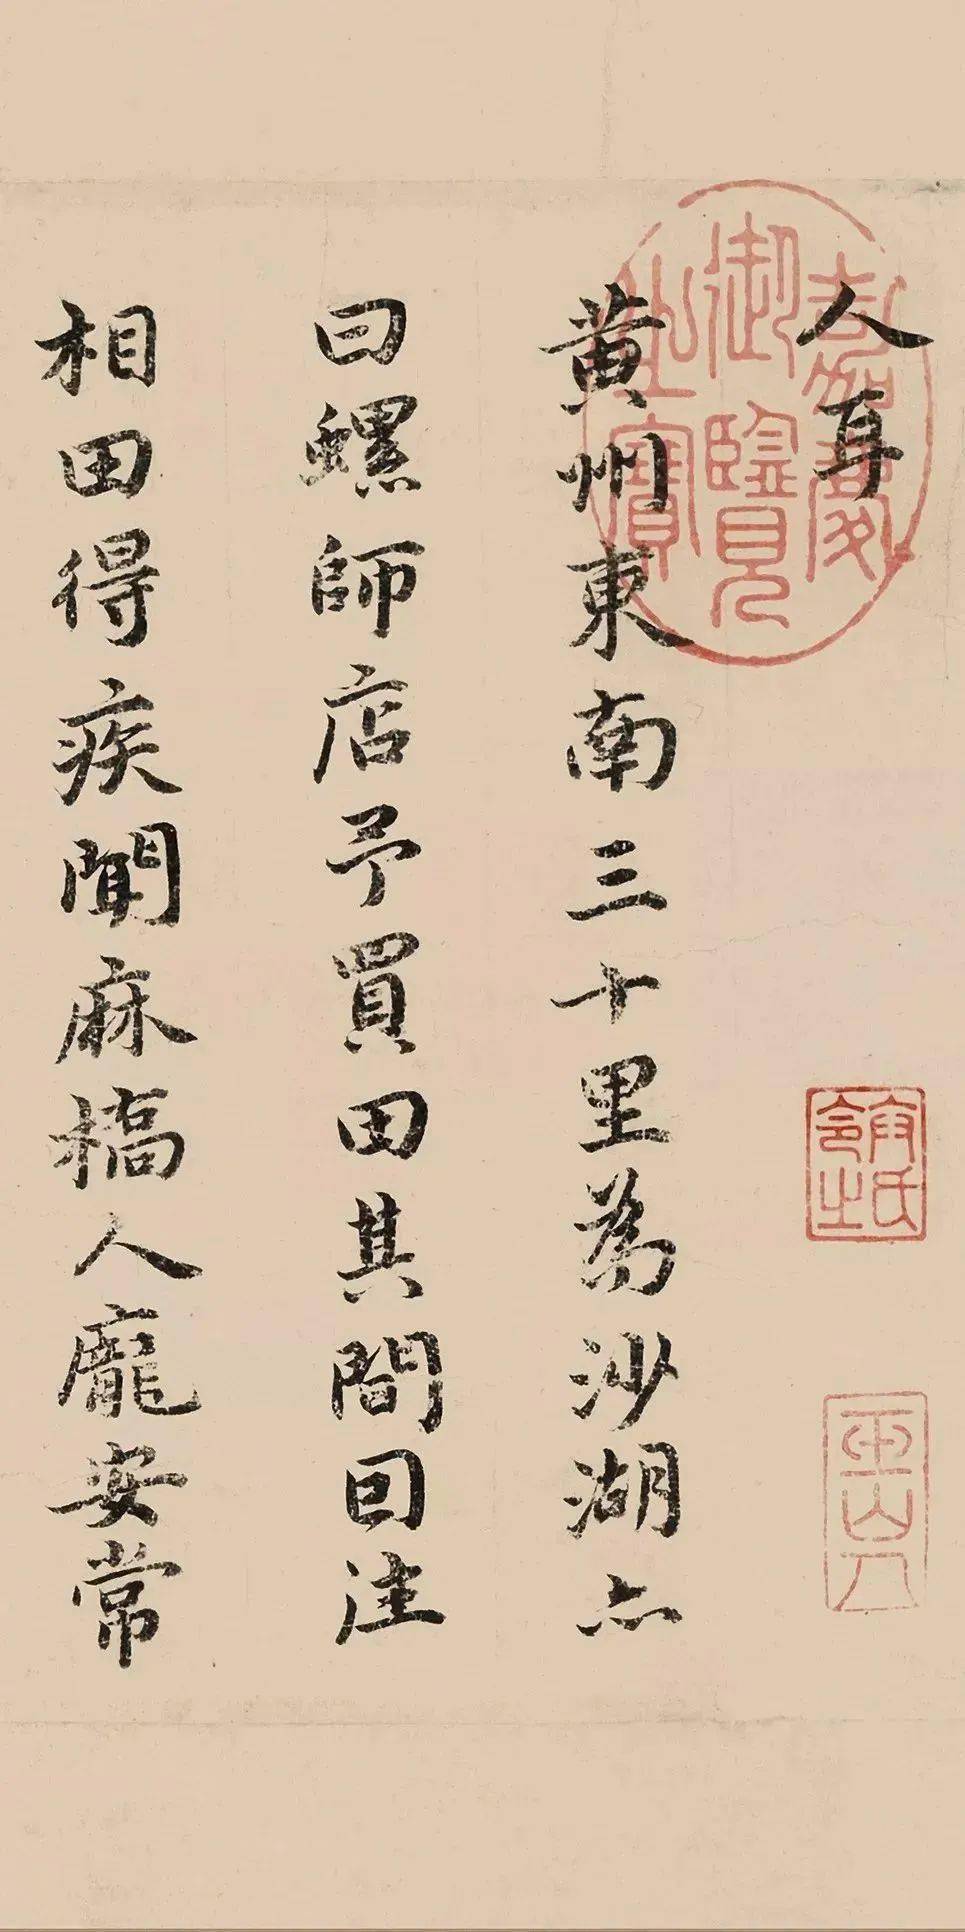 人耳
黄州東南三十里為沙湖亦
曰螺師店予買田其間囙淮
相田得疾聞麻橋人龐安常
嘉慶御覽之寶